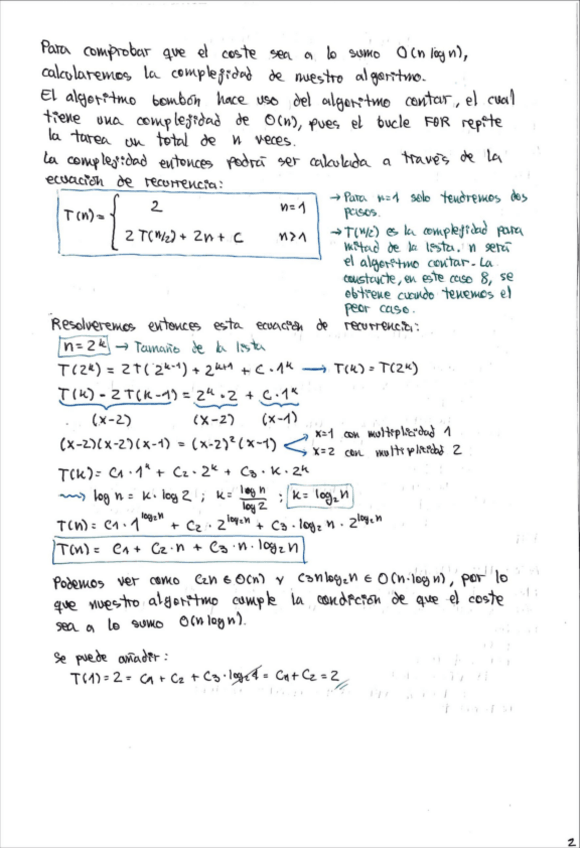 Para comprobar que el coste sea a lo sumo O(n log n),
calcularemos la complejidad de nuestro algoritmo.
El algoritmo bombón hace uso del algoritmo contar, el cual
tiene una complejidad de O(n), pues el bucle FOR repite
la tarea un total de n veces.
La complejidad entonces podrá ser calculada a través de la
ecuación de recurrencia:
T(n)= { 2 n=1
2T(n/2) + 2n + c n>1
→ Para n=1 solo tendremos dos
pasos.
→ T(n/2) es la complejidad para
mitad de la lista. n será
el algoritmo contar. La
constante, en este caso 8, se
obtiene cuando tenemos el
peor caso.
Resolveremos entonces esta ecuación de recurrencia:
n=2^k → Tamaño de la lista
T(2^k) = 2T(2^(k-1)) + 2^(k+1) + c·1^k → T(k) = T(2^k)
T(k) - 2T(k-1) = 2^k·2 + c·1^k
(x-2) (x-2) (x-1)
(x-2)(x-2)(x-1) = (x-2)²(x-1)
x=1 con multiplicidad 1
x=2 con multiplicidad 2
T(k) = c1·1^k + c2·2^k + c3·k·2^k
⟿ log n = k·log 2 ; k = log n / log 2 ; k = log₂n
T(n) = c1·1^(log₂n) + c2·2^(log₂n) + c3·log₂n·2^(log₂n)
T(n) = c1 + c2·n + c3·n·log₂n
Podemos ver como c2n ∈ O(n) y c3nlog₂n ∈ O(n·log n), por lo
que nuestro algoritmo cumple la condición de que el coste
sea a lo sumo O(n log n).
Se puede añadir:
T(1) = 2 = c1 + c2 + c3·log₂1 = c1 + c2 = 2
2